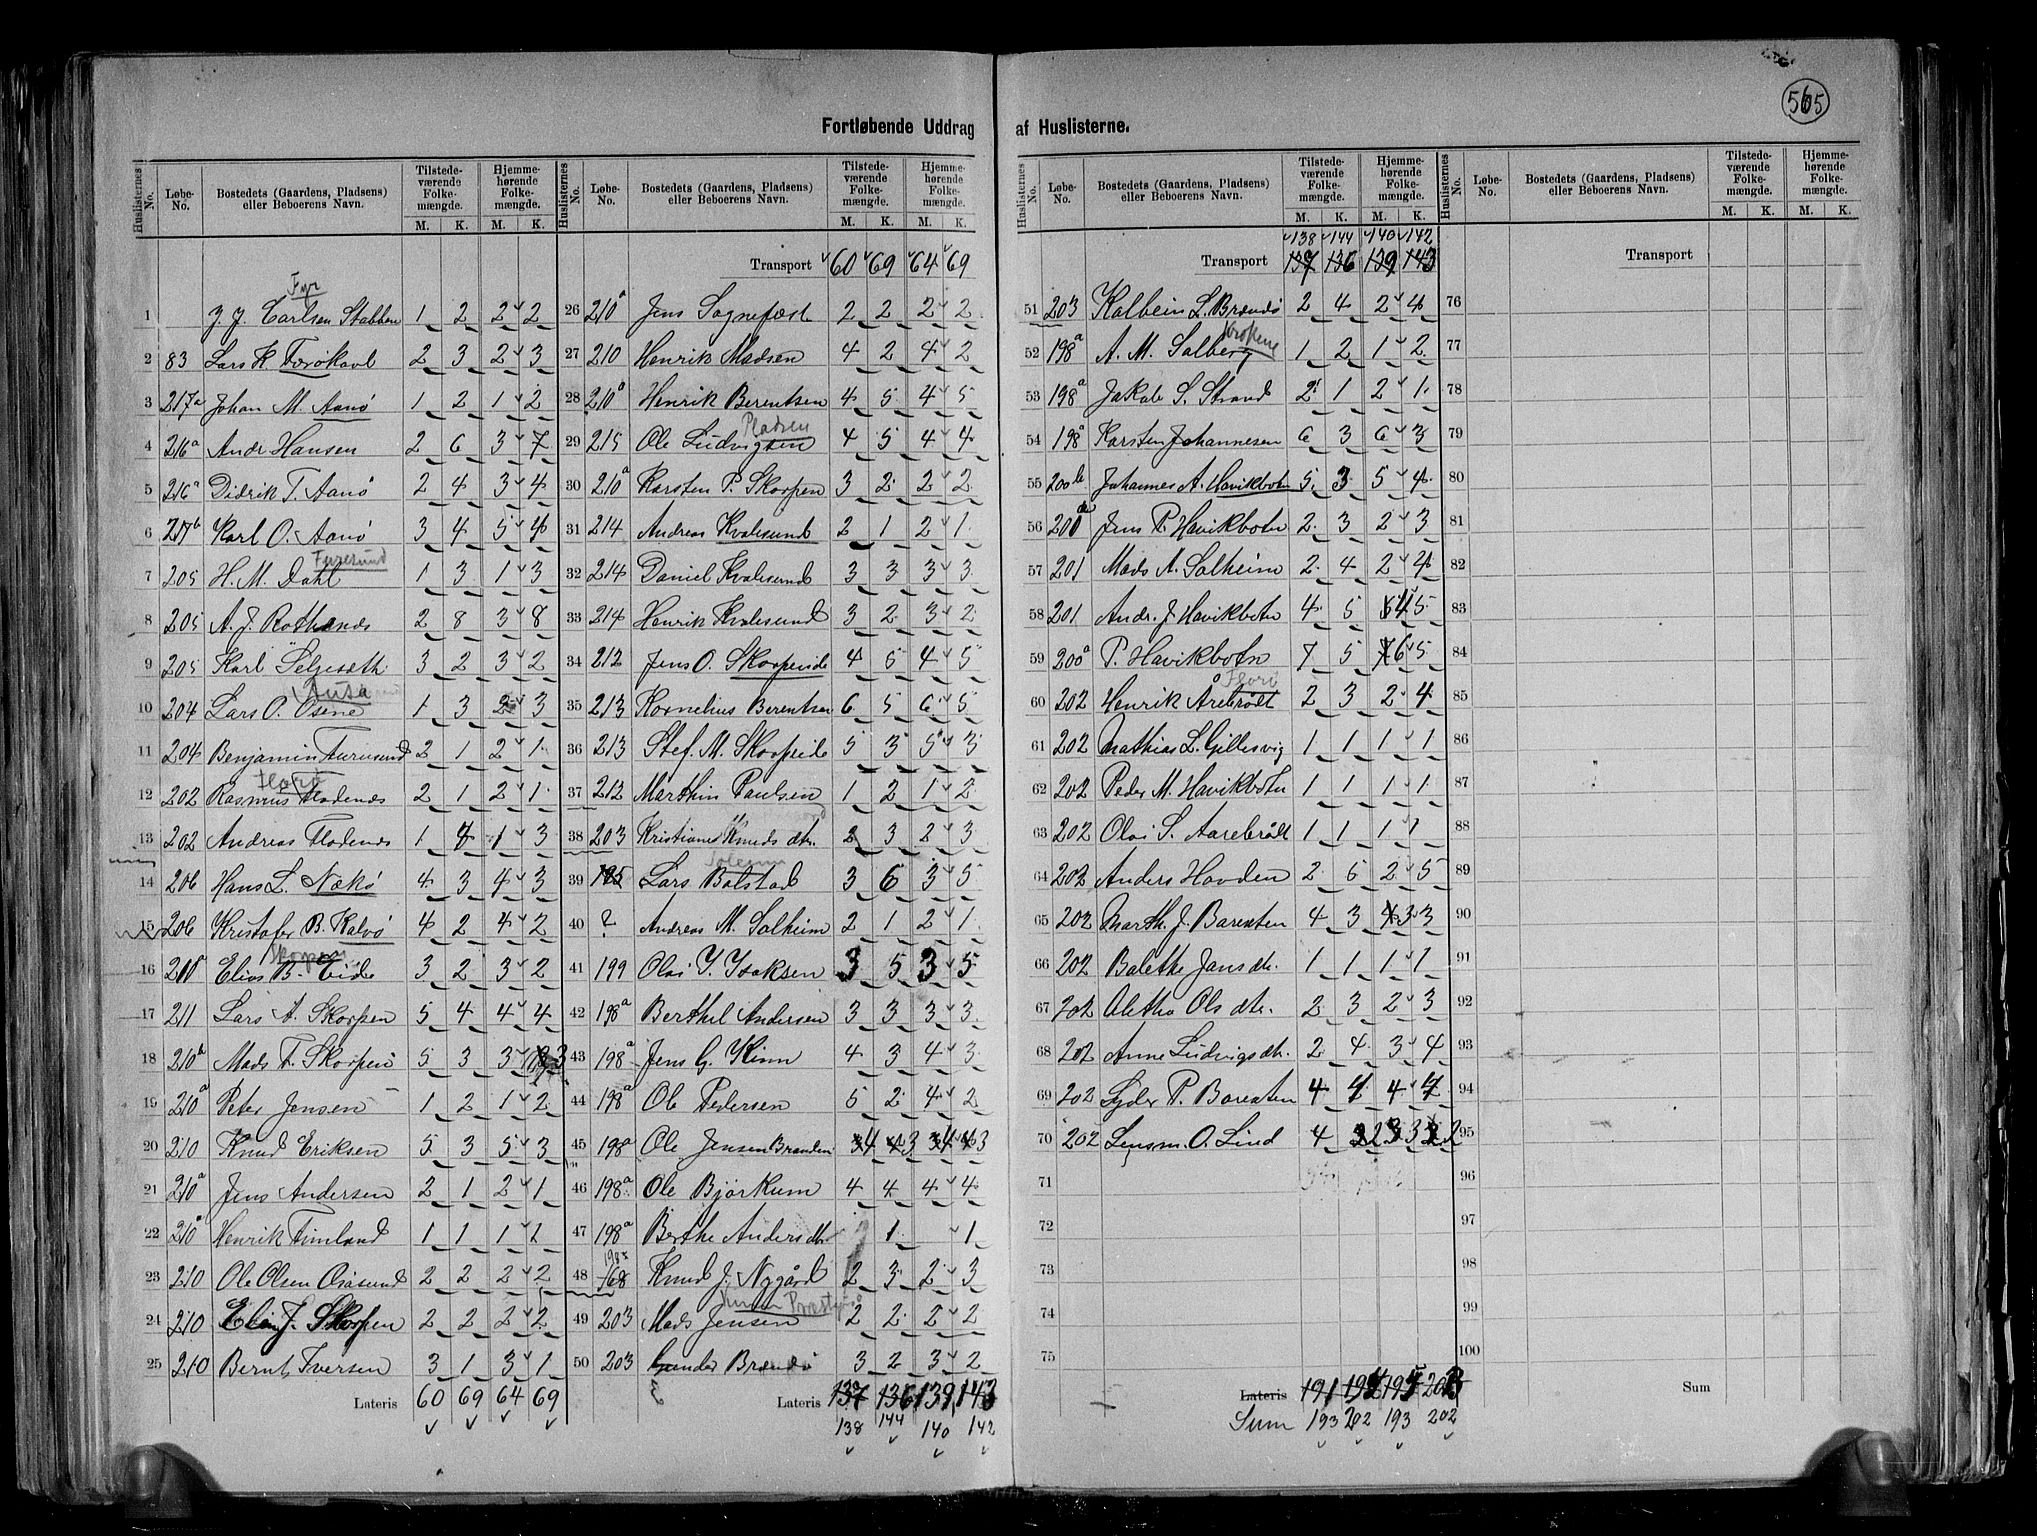 565
Fortløbende Uddrag af Huslisterne.
Huslisternes No. Løbe-No. Bostedets (Gaardens, Pladsens) eller Beboerens Navn. Tilstedeværende Folkemængde. M. K. Hjemmehørende Folkemængde. M. K.
Fyr
1 J. J. Carlsen Stabben 1 2 2 2
2 83 Lars K. Færøkavl 2 3 2 3
3 217a Johan M. Aanø 1 2 1 2
4 216a Andr Hansen 2 6 3 7
5 216a Didrik T. Aanø 2 4 3 4
6 217b Karl O. Aanø 3 4 5 4
Furesund
7 205 H. M. Dahl 1 3 1 3
8 205 A. J. Rothenes 2 8 3 8
9 205 Karl Selgeseth 3 2 3 2
10 204 Lars O. Osene 1 3 2 3
11 204 Benjamin Furusund 2 1 2 1
Florø
12 202 Rasmus Flodenes 2 1 2 1
13 202 Andreas Flodenes 1 4 1 3
14 206 Hans L. Nækø 4 3 4 3
15 206 Kristofer B. Kalvø 4 2 4 2
Skorpen
16 210 Elias B. Eide 3 2 3 2
17 211 Lars A. Skorpen 5 4 4 4
18 210b Mads T. Skorpen 5 3 3 3
19 210a Peter Jensen 1 2 1 2
20 210 Knud Eriksen 5 3 5 3
21 210a Jens Andersen 2 1 2 1
22 210a Henrik Timland 1 1 1 1
23 210 Ole Olsen Oiasund 2 2 2 2
24 210 Elin J. Skorpen 2 2 2 2
25 210 Bernt Iversen 3 1 3 1
Lateris 60 69 64 69
Huslisternes No. Løbe-No. Bostedets (Gaardens, Pladsens) eller Beboerens Navn. Tilstedeværende Folkemængde. M. K. Hjemmehørende Folkemængde. M. K.
Transport 60 69 64 69
26 210a Jens Sognefæst 2 2 2 2
27 210 Henrik Madsen 4 2 4 2
28 210a Henrik Berentsen 4 5 4 5
Pladsen
29 215 Ole Ludvigsen 4 5 4 4
30 210a Karsten P. Skorpen 3 2 2 2
31 214 Andreas Kvalesund 2 1 2 1
32 214 Daniel Kvalesund 3 3 3 3
33 214 Henrik Kvalesund 3 2 3 2
34 212 Jens O. Skorpeide 4 5 4 5
35 213 Kornelius Berentsen 6 5 6 5
36 213 Stef. M. Skorpeide 5 3 5 3
37 212 Marthin Paulsen 1 2 1 2
38 203 Kristiane Knuds dtr. 2 3 2 3
39 195 Lars Bolstad 3 6 3 5
40 ? Andreas M. Solheim 2 1 2 1
41 199 Olai I. Isaksen 3 5 3 5
42 198a Berthel Andersen 3 3 3 3
43 198a Jens G. Kinn 4 3 4 3
44 198a Ole Pedersen 5 2 4 2
45 198a Ole Jensen Branden 4 3 4 3
46 198a Ole Bjørkum 4 4 4 4
47 198a Berthe Anders dtr 1 1
198a
48 168 Knud J. Nygård 2 3 2 3
49 203 Mads Jensen 2 2 2 2
50 203 Gunder Brandsø 3 2 3 2
Lateris 137 136 139 143
138 144 140 142
Huslisternes No. Løbe-No. Bostedets (Gaardens, Pladsens) eller Beboerens Navn. Tilstedeværende Folkemængde. M. K. Hjemmehørende Folkemængde. M. K.
138 144 140 142
Transport 137 136 139 143
51 203 Kolbein L. Brandsø 2 4 2 4
52 198a A. M. Solberg 1 2 1 2
53 198a Jakob S. Strand 2 1 2 1
54 198a Karsten Johannesen 6 3 6 3
55 200b Johannes A. Havikbotn 5 3 5 4
56 200 Jens P. Havikbotn 2 3 2 3
57 201 Mads A. Solheim 2 4 2 4
58 201 Andr. J. Havikbotn 4 5 4 5
59 200a P. Havikbotn 7 5 6 5
Florø
60 202 Henrik Årebrødt 2 3 2 4
61 202 Mathias L. Gillesvig 1 1 1 1
62 202 Peder M. Havikbotn 1 1 1 1
63 202 Olai S. Aarebrødt 1 1 1 1
64 202 Anders Hovden 2 5 2 5
65 202 Marth. J. Barenten 4 3 3 3
66 202 Balethe Jans dtr. 1 1 1 1
67 202 Alethe Ols dtr. 2 3 2 3
68 202 Anne Ludvigs dtr. 2 4 3 4
69 202 Lyder P. Barenten 4 4 4 4
70 202 Lensm. O. Lind 4 2 3 2
71
72
73
74
75
Lateris 191
Sum 193 202 193 202
Huslisternes No. Løbe-No. Bostedets (Gaardens, Pladsens) eller Beboerens Navn. Tilstedeværende Folkemængde. M. K. Hjemmehørende Folkemængde. M. K.
Transport
76
77
78
79
80
81
82
83
84
85
86
87
88
89
90
91
92
93
94
95
96
97
98
99
100
Sum